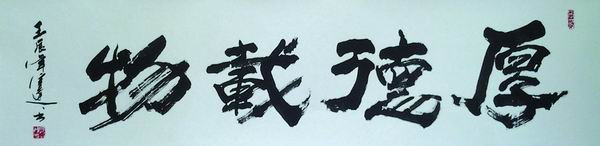 厚德載物
壬辰
书